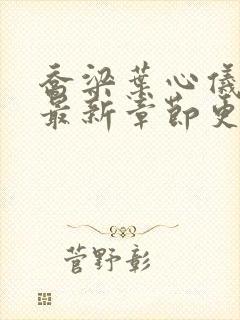 乔梁葉心儀
最新章節更
菅野彰